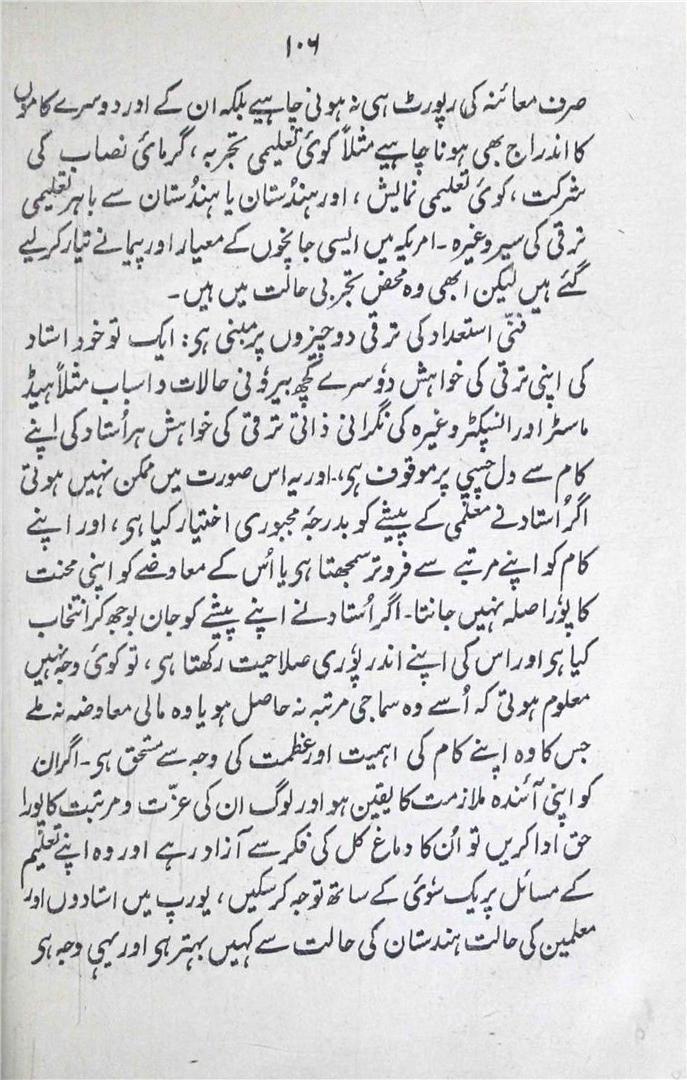 ۱۰۶
صرف معائنہ کی رپورٹ ہی نہ ہونی چاہیے بلکہ ان کے اور دوسرے کاموں
کا اندراج بھی ہونا چاہیے مثلاً کوئی تعلیمی تجربہ، گرمائی نصاب کی
شرکت، کوئی تعلیمی نمایش، اور ہندُستان یا ہندُستان سے باہر تعلیمی
ترقی کی سیر وغیرہ۔ امریکہ میں ایسی جانچوں کے معیار اور پیمانے تیار کرلیے
گئے ہیں لیکن ابھی وہ محض تجربی حالت میں ہیں۔
فنّی استعداد کی ترقی دو چیزوں پر مبنی ہی: ایک تو خود استاد
کی اپنی ترقی کی خواہش دوٗسرے کچھ بیروٗنی حالات و اسباب مثلاً ہیڈ
ماسٹر اور انسپکٹر وغیرہ کی نگرانی ذاتی ترقی کی خواہش ہر اُستاد کی اپنے
کام سے دل چسپی پر موقوف ہی، اور یہ اس صورت میں ممکن نہیں ہوتی
اگر اُستاد نے معلّمی کے پیشے کو بدرجۂ مجبوری اختیار کیا ہی، اور اپنے
کام کو اپنے مرتبے سے فروتر سمجھتا ہی یا اُس کے معاوضے کو اپنی محنت
کا پوٗرا صلہ نہیں جانتا۔ اگر اُستاد نے اپنے پیشے کو جان بوجھ کر انتخاب
کیا ہی اور اس کی اپنے اندر پوٗری صلاحیت رکھتا ہی، تو کوئی وجہ نہیں
معلوم ہوتی کہ اُسے وہ سماجی مرتبہ نہ حاصل ہو یا وہ مالی معاوضہ نہ ملے
جس کا وہ اپنے کام کی اہمیت اور عظمت کی وجہ سے مستحق ہی۔ اگر ان
کو اپنی آئندہ ملازمت کا یقین ہو اور لوگ ان کی عزّت و مرتبت کا پورا
حق ادا کریں تو اُن کا دماغ کل کی فکر سے آزاد رہے اور وہ اپنے تعلیم
کے مسائل پر یک سوٗئی کے ساتھ توجہ کرسکیں، یورپ میں استادوں اور
معلمین کی حالت ہندستان کی حالت سے کہیں بہتر ہو اور یہی وجہ ہی